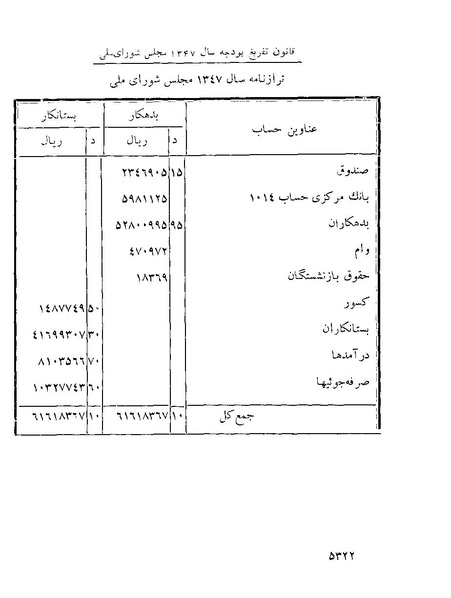 قانون تفریغ بودجه سال ۱۳۴۷ مجلس شورای‌ملی
ترازنامه سال ۱۳۴۷ مجلس شورای ملی
عناوین حساب بدهکار بستانکار
د ریال د ریال
صندوق ۱۵ ۲۳۴۶۹۰۵
بانک مرکزی حساب ۱۰۱۴ ۵۹۸۱۱۲۵
بدهکاران ۹۵ ۵۲۸۰۰۹۹۵
وام ۴۷۰۹۷۲
حقوق بازنشستگان ۱۸۳۶۹
کسور ۵۰ ۱۴۸۷۷۴۹
بستانکاران ۳۰ ۴۱۶۹۹۳۰۷
درآمدها ۷۰ ۸۱۰۳۵۶۶
صرفه‌جوئیها ۶۰ ۱۰۳۲۷۷۴۳
جمع کل ۱۰ ۶۱۶۱۸۳۶۷ ۱۰ ۶۱۶۱۸۳۶۷
۵۳۲۲